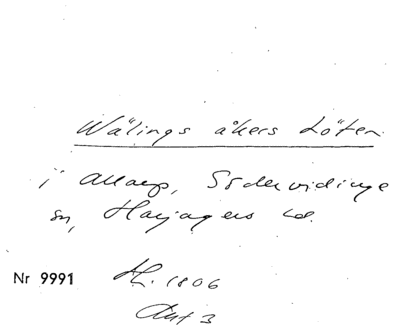 Wälings åkers Löten
i Allarp, Södervidinge
sn, Harjagers hd.
Nr 9991
H. 1806
Akt 3